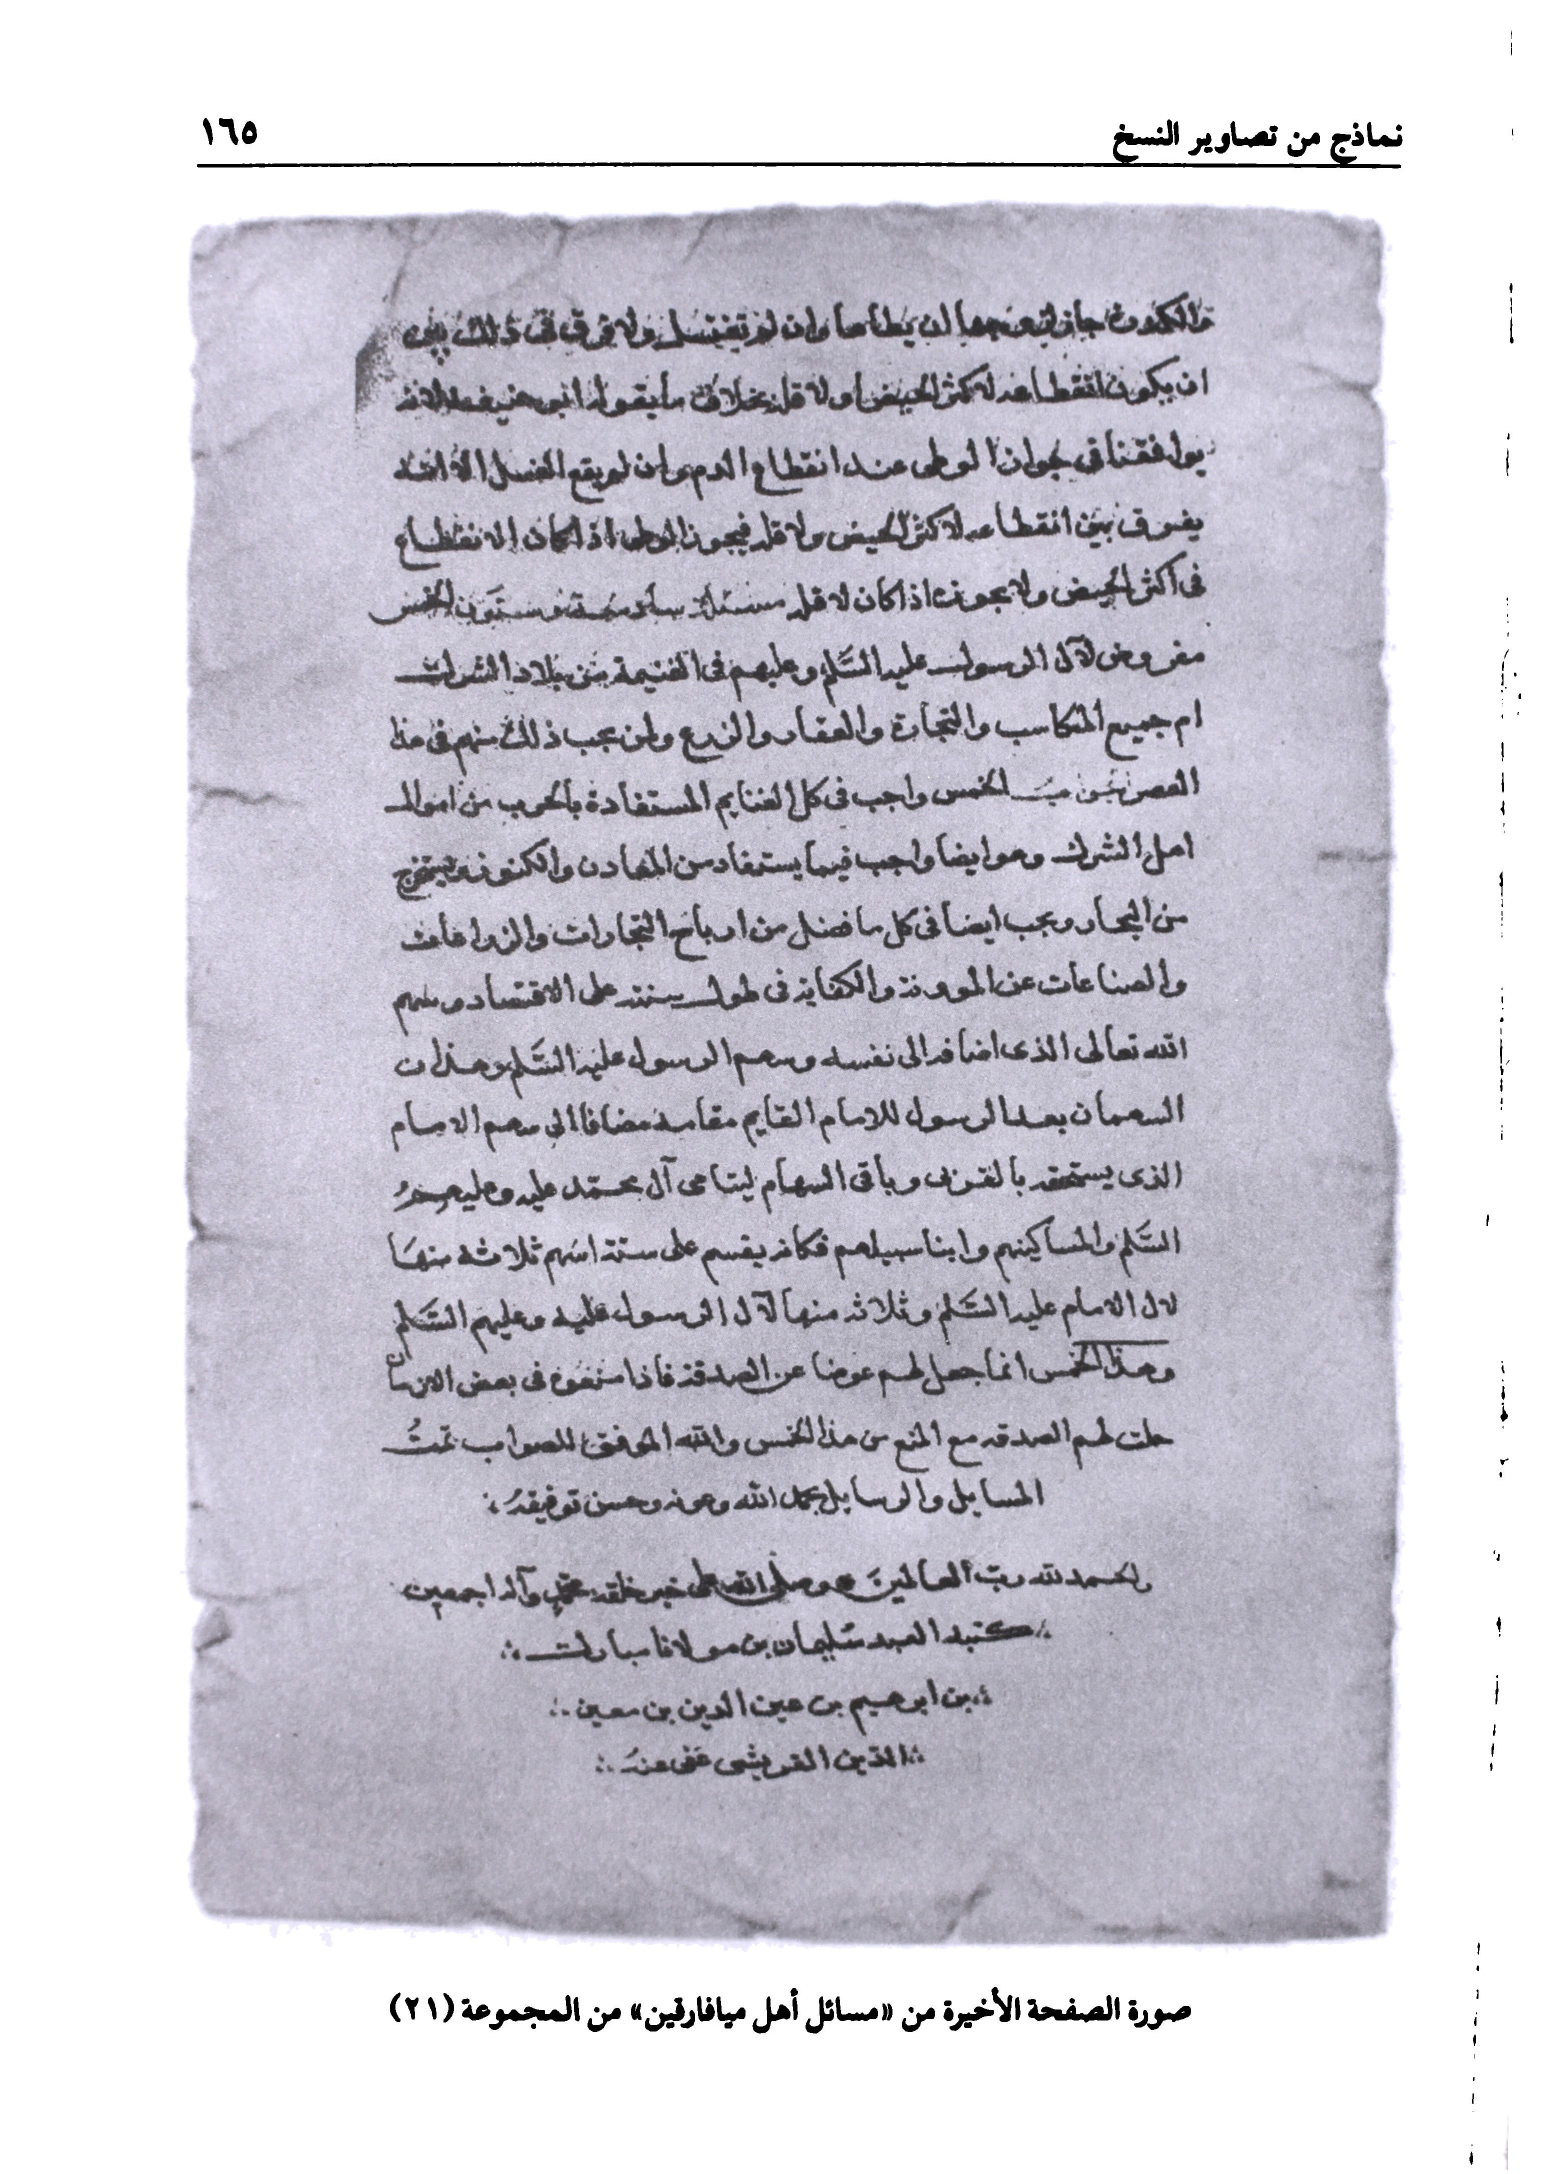 نماذج من تصاوير النسخ
١٦٥
جاز لزوجها ان يطأها وان لم تغتسل ولا فرق فى ذلك بين
ان يكون انقطاعه لاكثر الحيض او لاقله بخلاف ما يقوله ابو حنيفه لانه
يوافقنا فى جواز الوطى عند انقطاع الدم وان لم يقع الغسل الا انه
يفرق بين انقطاعه لاكثر الحيض ولاقله فيجوز الوطى اذا كان الانقطاع
فى اكثر الحيض ولا يجوز اذا كان لاقله مسئلة وستون الخمس
مفروض لآل الرسول عليه السَّلم وعليهم فى الغنيمة من بلاد الشرك
ام جميع المكاسب والتجارة والعقار والزرع ولمن يجب ذلك منهم فى هذا
العصر الخمس واجب فى كل الغنايم المستفادة بالحرب من اموال
اهل الشرك وهو ايضا واجب فيما يستفاد من المعادن والكنوز ويستخرج
من البحار ويجب ايضا فى كل ما فضل من ارباح التجارات والزراعات
والصناعات عن المؤونة والكفاية فى طول سنته على الاقتصاد وسهم
الله تعالى الذى اضافه الى نفسه وسهم الرسول عليه السَّلم وهذان
السهمان بعد الرسول للامام القايم مقامه مضافا الى سهم الامام
الذى يستحقه بالقربى وباقى السهام ليتامى آل محمّد عليه وعليهمُ
السَّلم والمساكينهم وابنا سبيلهم فكانه يقسم على ستة اسهم ثلاثة منها
لال الامام عليه السَّلم وثلاثه منها لآل الرسول عليه وعليهم السَّلم
وهذا الخمس انما جعل لهم عوضا عن الصدقة فاذا منعوه فى بعض الازمان
حلت لهم الصدقه مع المنع من هذا الخمس والله الموفق للصواب تمتُ
المسايل والرسايل بحمد الله وعونه وحسن توفيقهُ
والحمد لله ربّ العالمينَ وصلى الله على خير خلقه محمّد وآله اجمعين
كتبه العبد سليمان بن مولانا مبارك
بن ابرهيم بن عين الدين بن معين
الدين القريشى عفى عنهُ
صورة الصفحة الأخيرة من «مسائل أهل ميافارقين» من المجموعة (٢١)